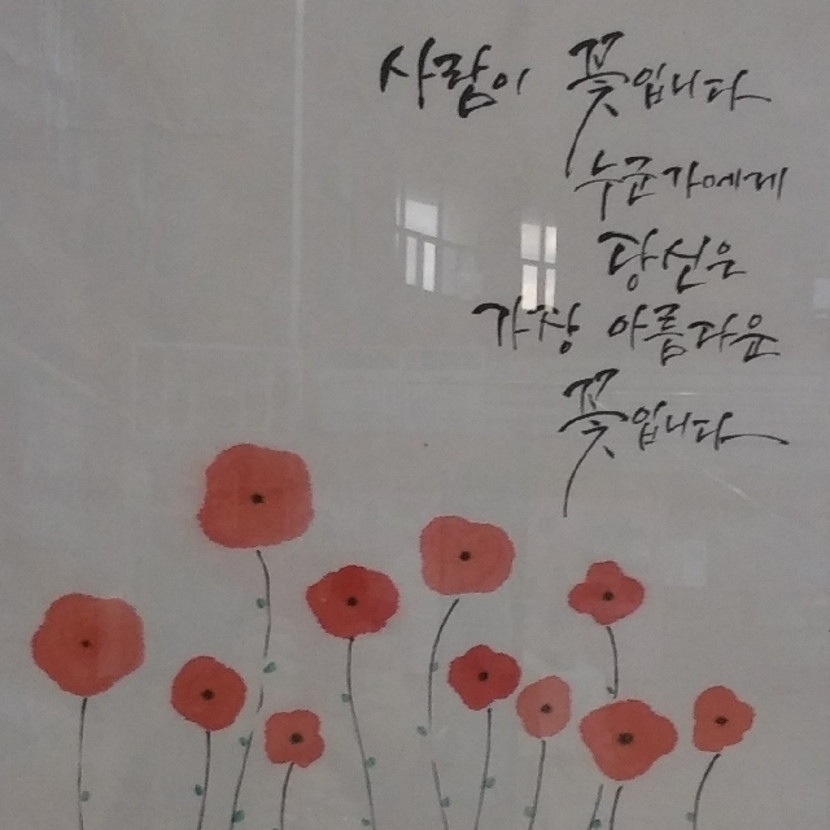 사람이 꽃입니다
누군가에게
당신은
가장 아름다운
꽃입니다